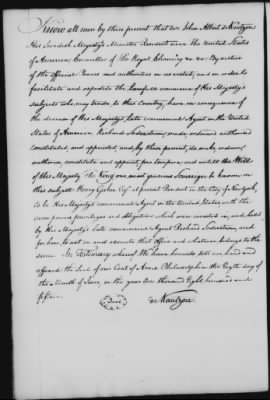 Know all men by these present that we John Albert de Kantzow
His Swedish Majesty's Minister Resident near the United States
of America Counsellor of the Royal Chancery &c &c By virtue
of the official Power and authorities in us vested, and in order to
facilitate and expedite the Lawful commerce of His Majesty's
subjects who may trade to this Country, have in consequence of
the decease of His Majesty's Late commercial Agent in the United
States of America, Richard Soderstrom, made, ordained authorised
constituted, and appointed, and by these present, do make, ordain,
authorise, constitute and appoint, pro tempore, and until the Will
of His Majesty The King our most gracious Sovereign be known on
this subject Henry Gahn Esq. at present Resident in the City of New York,
to be His Majesty's commercial Agent in the United States, with the
same powers privileges and obligations which were invested in, and held
by His Majesty's Late commercial Agent Richard Soderstrom, and
for him, to act in and execute that office and matters belonging to the
same. In Testimony whereof We have hereunto set our hand and
affixed the Seal of our Coat of Arms Philadelphia the Eighth day of
the Month of June, in the year One thousand Eight hundred and
fifteen.
Seal
de Kantzow